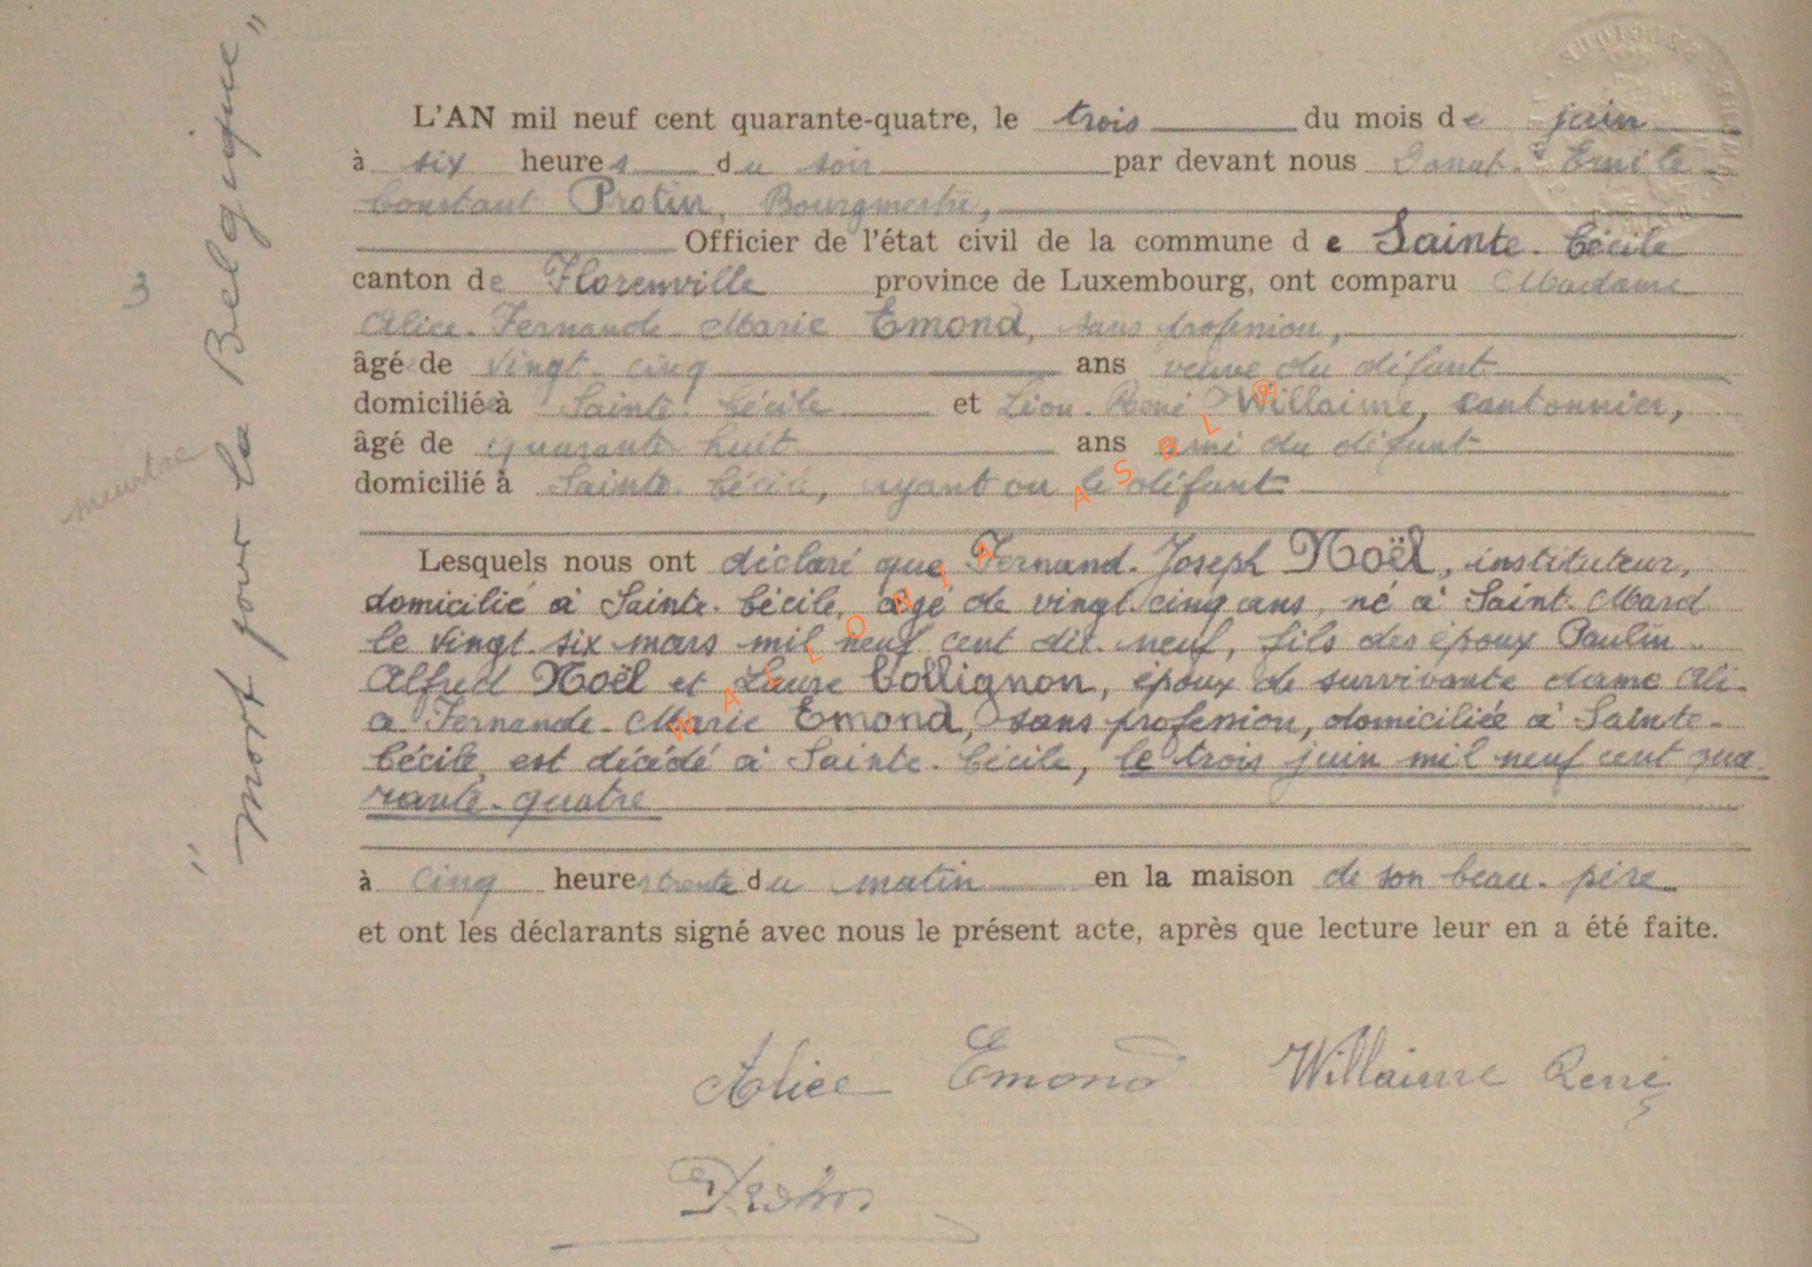 "Mort pour la Belgique"
3
meurtre
L'AN mil neuf cent quarante-quatre, le trois du mois de juin
à six heures du soir par devant nous Donat-Emile
Constant Protin, Bourgmestre,
Officier de l'état civil de la commune de Sainte-Cécile
canton de Florenville province de Luxembourg, ont comparu Madame
Alice-Fernande-Marie Emond, sans profession,
âgée de vingt-cinq ans veuve du défunt
domiciliée à Sainte-Cécile et Léon-René Willaime, cantonnier,
âgé de quarante-huit ans ami du défunt
domicilié à Sainte-Cécile, ayant vu le défunt
Lesquels nous ont déclaré que Fernand-Joseph Noël, instituteur,
domicilié à Sainte-Cécile, âgé de vingt-cinq ans, né à Saint-Mard
le vingt-six mars mil neuf cent dix-neuf, fils des époux Paulin-
Alfred Noël et Laure Collignon, époux de survivante dame Ali-
ce-Fernande-Marie Emond, sans profession, domiciliée à Sainte-
Cécile, est décédé à Sainte-Cécile, le trois juin mil neuf cent qua-
rante-quatre
à cinq heures trente du matin en la maison de son beau-père
et ont les déclarants signé avec nous le présent acte, après que lecture leur en a été faite.
Alice Emond Willaime René
Protin
WALLONIA ASBL ®